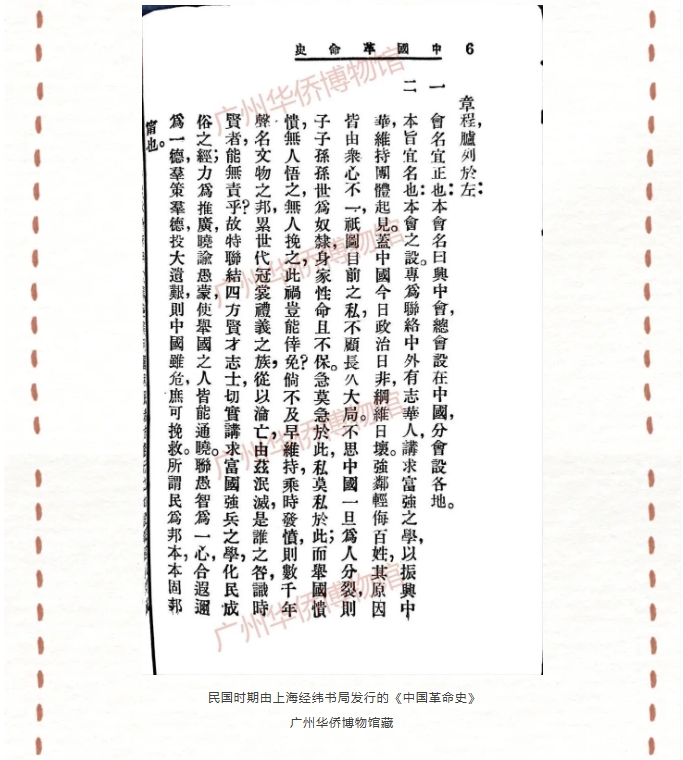 6 中國革命史
章程，臚列於左：
一 會名宜正也：本會名曰興中會，總會設在中國，分會設各地。
二 本旨宜名也：本會之設。專爲聯絡中外有志華人，講求富強之學，以振興中
華，維持團體起見。蓋中國今日政治日非，綱維日壞強鄰輕侮百姓，其原因
皆由衆心不一，祇圖目前之私，不顧長久大局。不思中國一旦爲人分裂，則
子子孫孫世爲奴隸，身家性命且不保。急莫急於此，私莫私於此；而舉國憒
憒，無人悟之，無人挽之，此禍豈能倖免？倘不及早維持，乘時發憤，則數千年
聲名文物之邦，累世代冠裳禮義之族，從以淪亡，由茲泯滅，是誰之咎識時
賢者，能無責乎？故特聯結四方賢才志士，切實講求富國強兵之學，化民成
俗之經；力爲推廣，曉諭愚蒙，使舉國之人皆能通曉。聯愚智爲一心，合遐邇
爲一德，羣策羣德，投大遺艱，則中國雖危，庶可挽救。所謂民爲邦本，本固邦
甯也。
广州华侨博物馆
广州华侨博物馆
广州华侨博物馆
广州华侨博物馆
民国时期由上海经纬书局发行的《中国革命史》
广州华侨博物馆藏